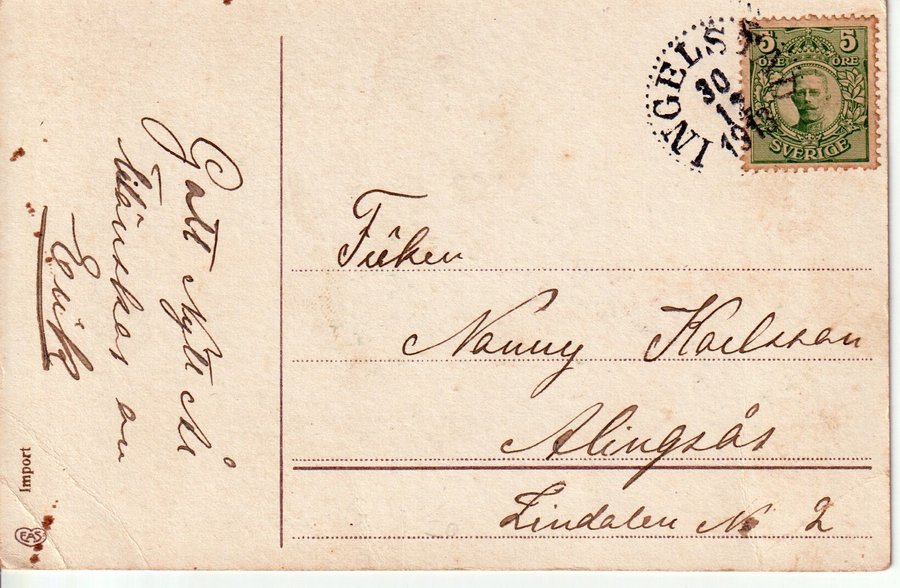 Gott Nytt År
tillönskas av
Erik
Import
EAS
INGELS
30
12
1913
5 5
ÖRE ÖRE
SVERIGE
Fröken
Nanny Karlsson
Alingsås
Lindalen No 2